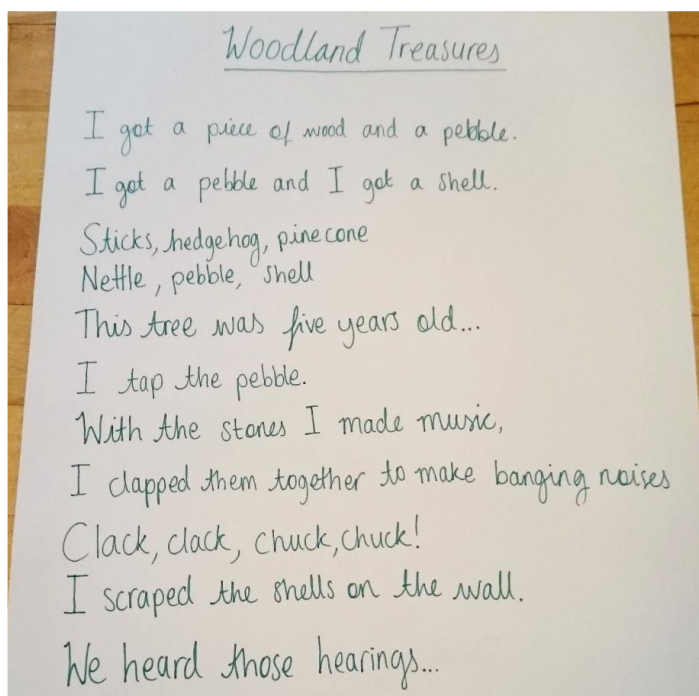 Woodland Treasures
I got a piece of wood and a pebble.
I got a pebble and I got a shell.
Sticks, hedgehog, pinecone
Nettle, pebble, shell
This tree was five years old...
I tap the pebble.
With the stones I made music,
I clapped them together to make banging noises
Clack, clack, chuck, chuck!
I scraped the shells on the wall.
We heard those hearings...